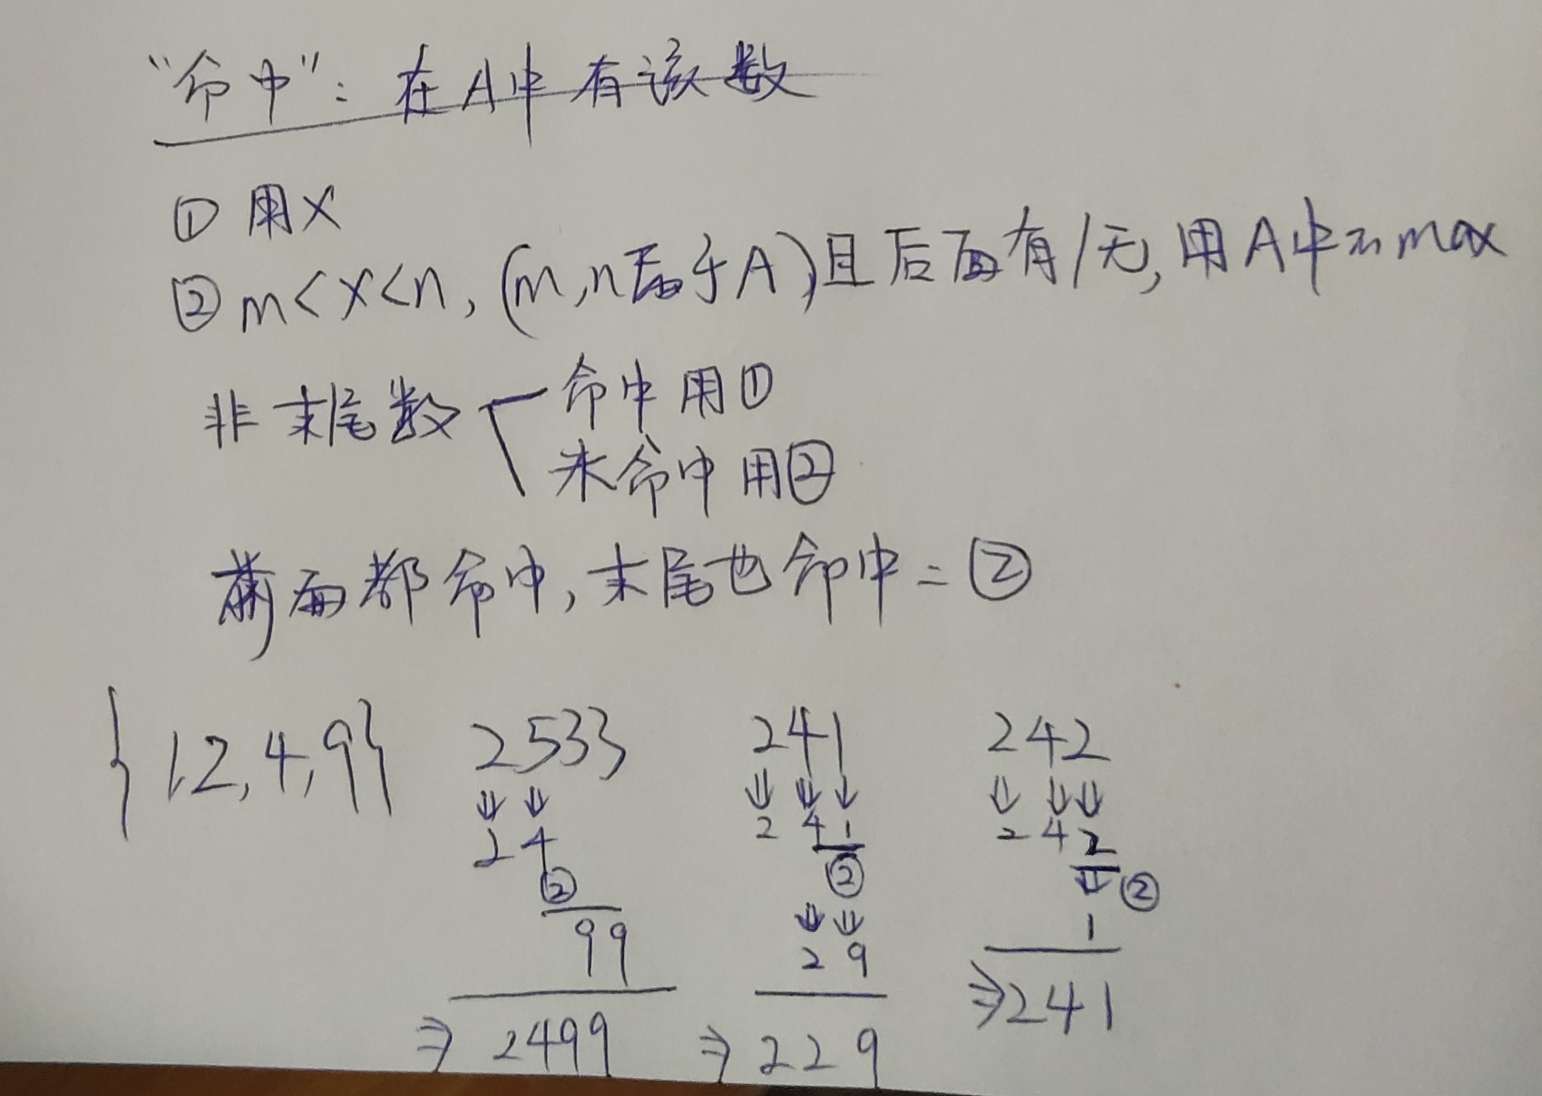 “命中”：在A中有该数
① 用X
② m<X<n, (m,n属于A)且后面有/无, 用A中的max
非末尾数 命中用①
未命中用②
前面都命中, 末尾也命中=②
{1,2,4,9} 2533 241 242
⇓ ⇓ ⇓ ⇓ ⇓ ⇓ ⇓ ⇓
2 4 2 4 1 2 4 2
② ② ⇓ ②
⇓ ⇓ 1
99 2 9
⇒ 2499 ⇒ 229 ⇒ 241